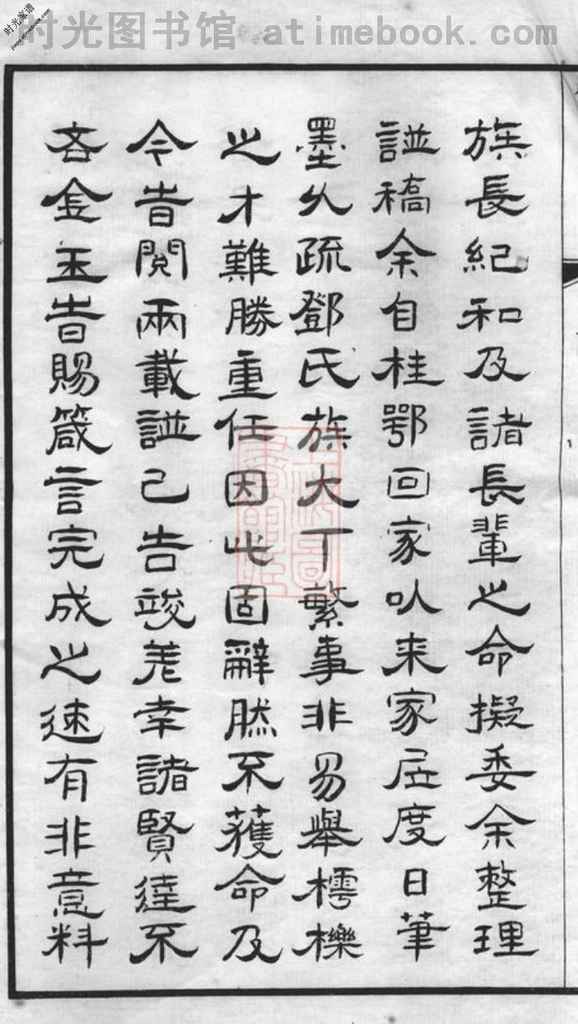 时光图书馆 atimebook.com
时光家谱
族長紀和及諸長輩之命擬委余整理
譜稿余自桂鄂回家以来家居度日筆
墨久疏鄧氏族大丁繁事非易舉樗櫟
之才難勝重任因此固辭然不獲命及
今昔閱兩載譜已告竣差幸諸賢達不
吝金玉昔賜箴言完成之速有非意料